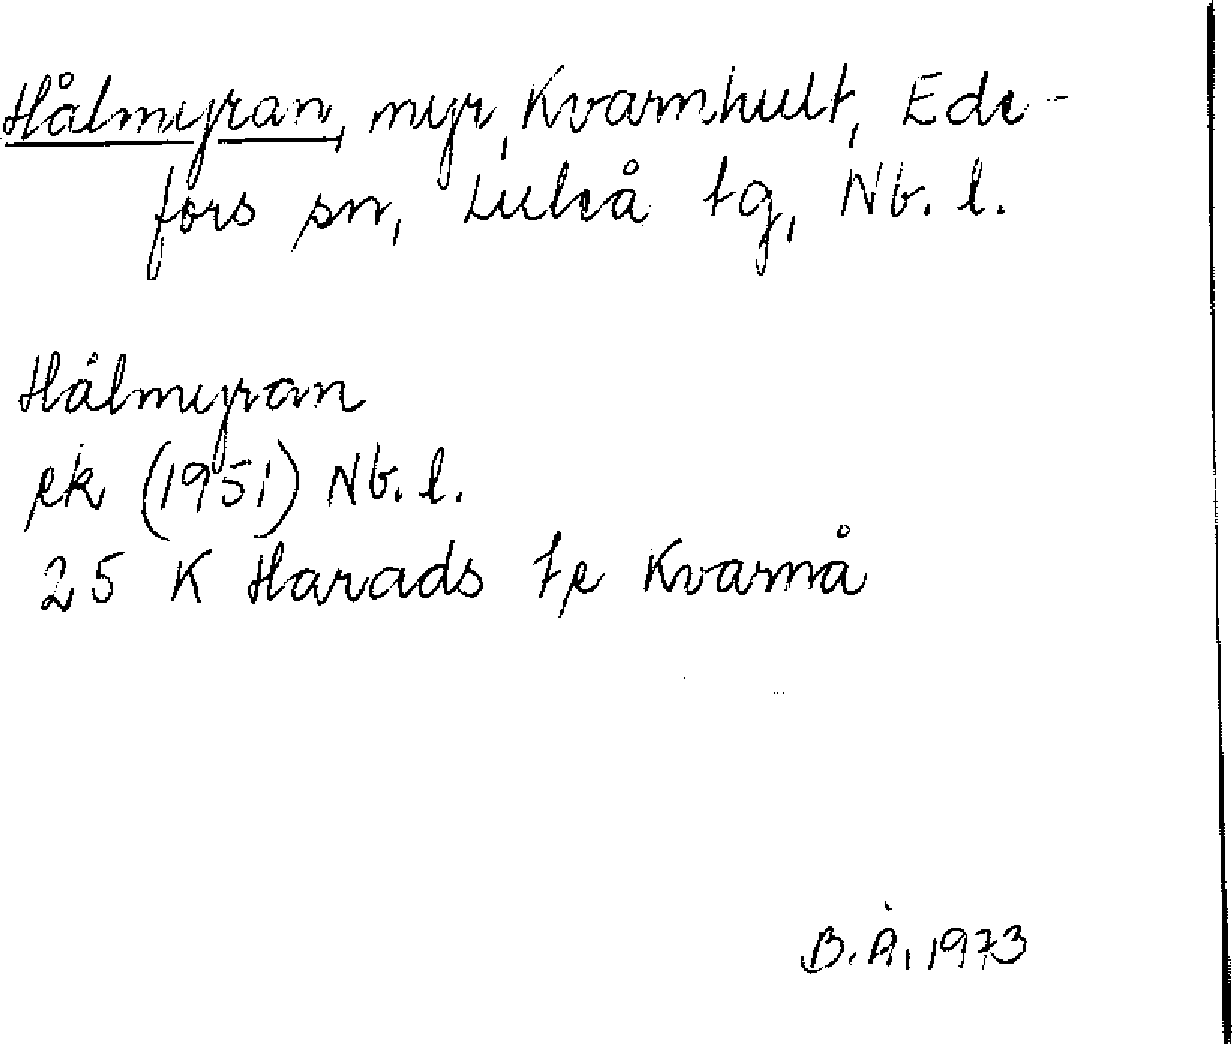 Hålmyran, myr, Kvarnhult, Ede-
fors sn, Luleå tg, Nb. l.
Hålmyran
ek (1951) Nb. l.
25 K Harads te Kvarnå
B. Å, 1973